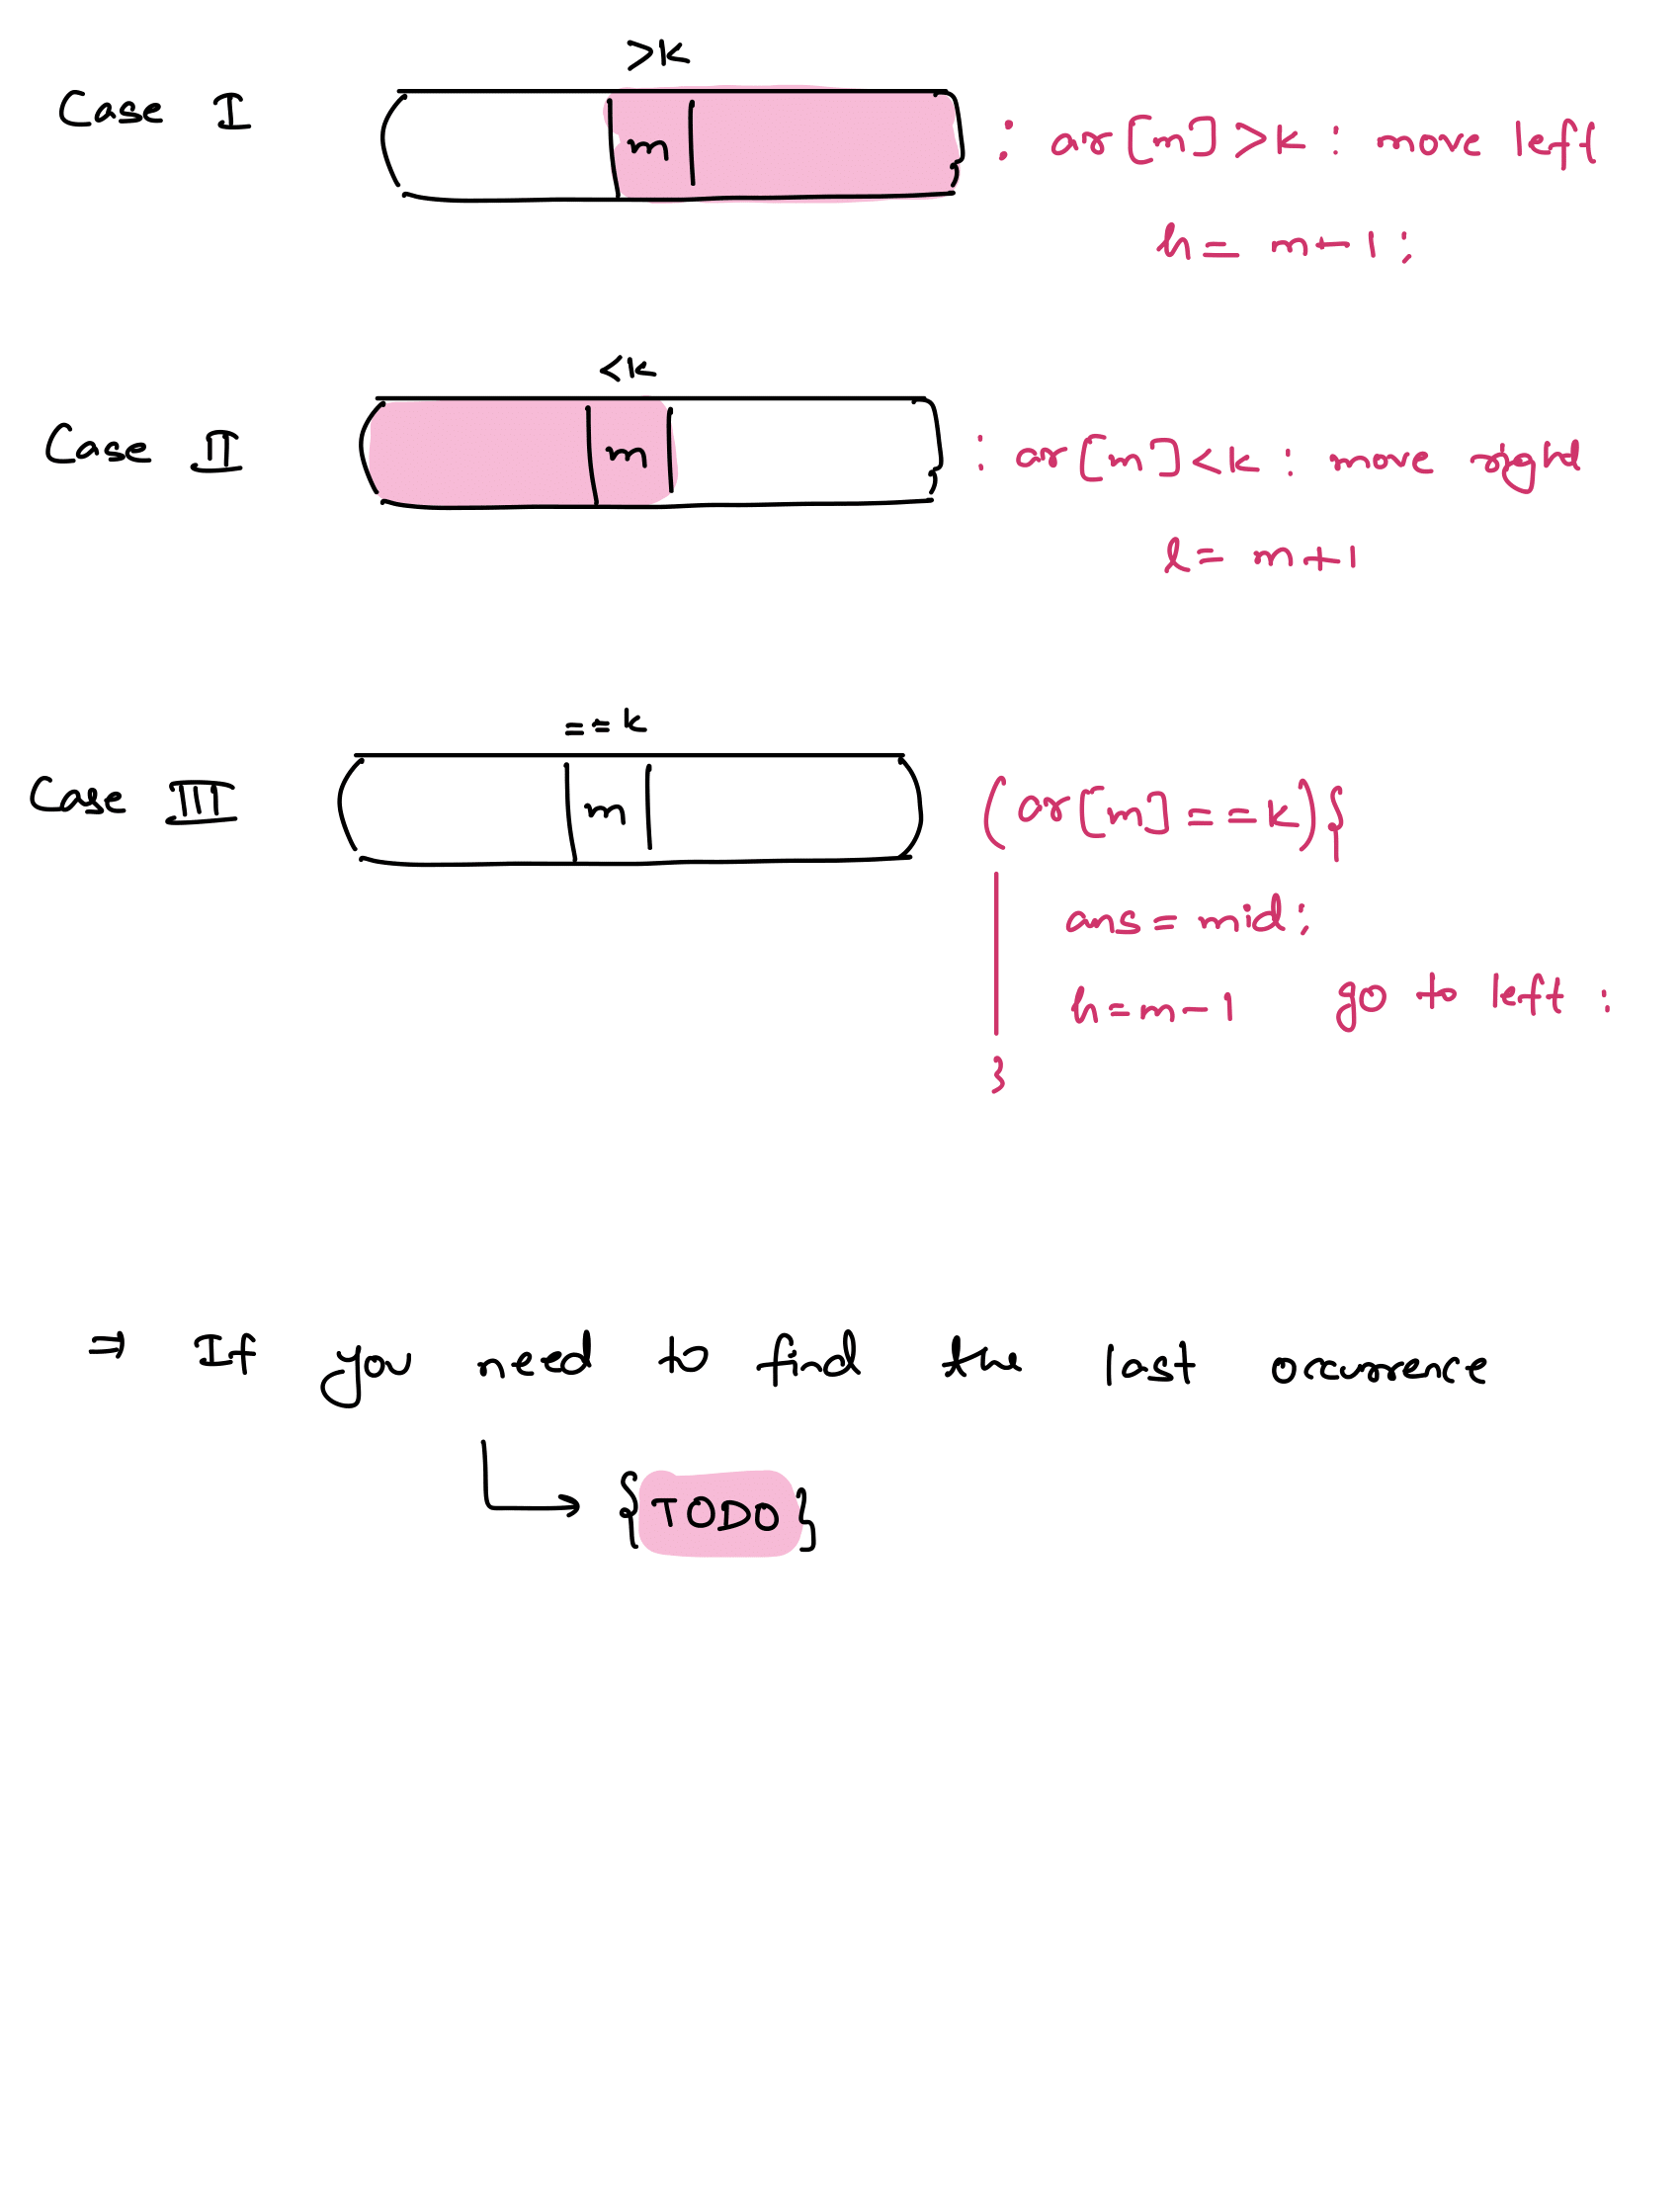 >k
Case I m : ar[m]>k : move left
h = m-1;
<k
Case II m : ar[m]<k : move right
l = m+1
==k
Case III m (ar[m]==k){
ans = mid;
h=m-1 go to left :
}
⇒ If you need to find the last occurrence
{TODO}